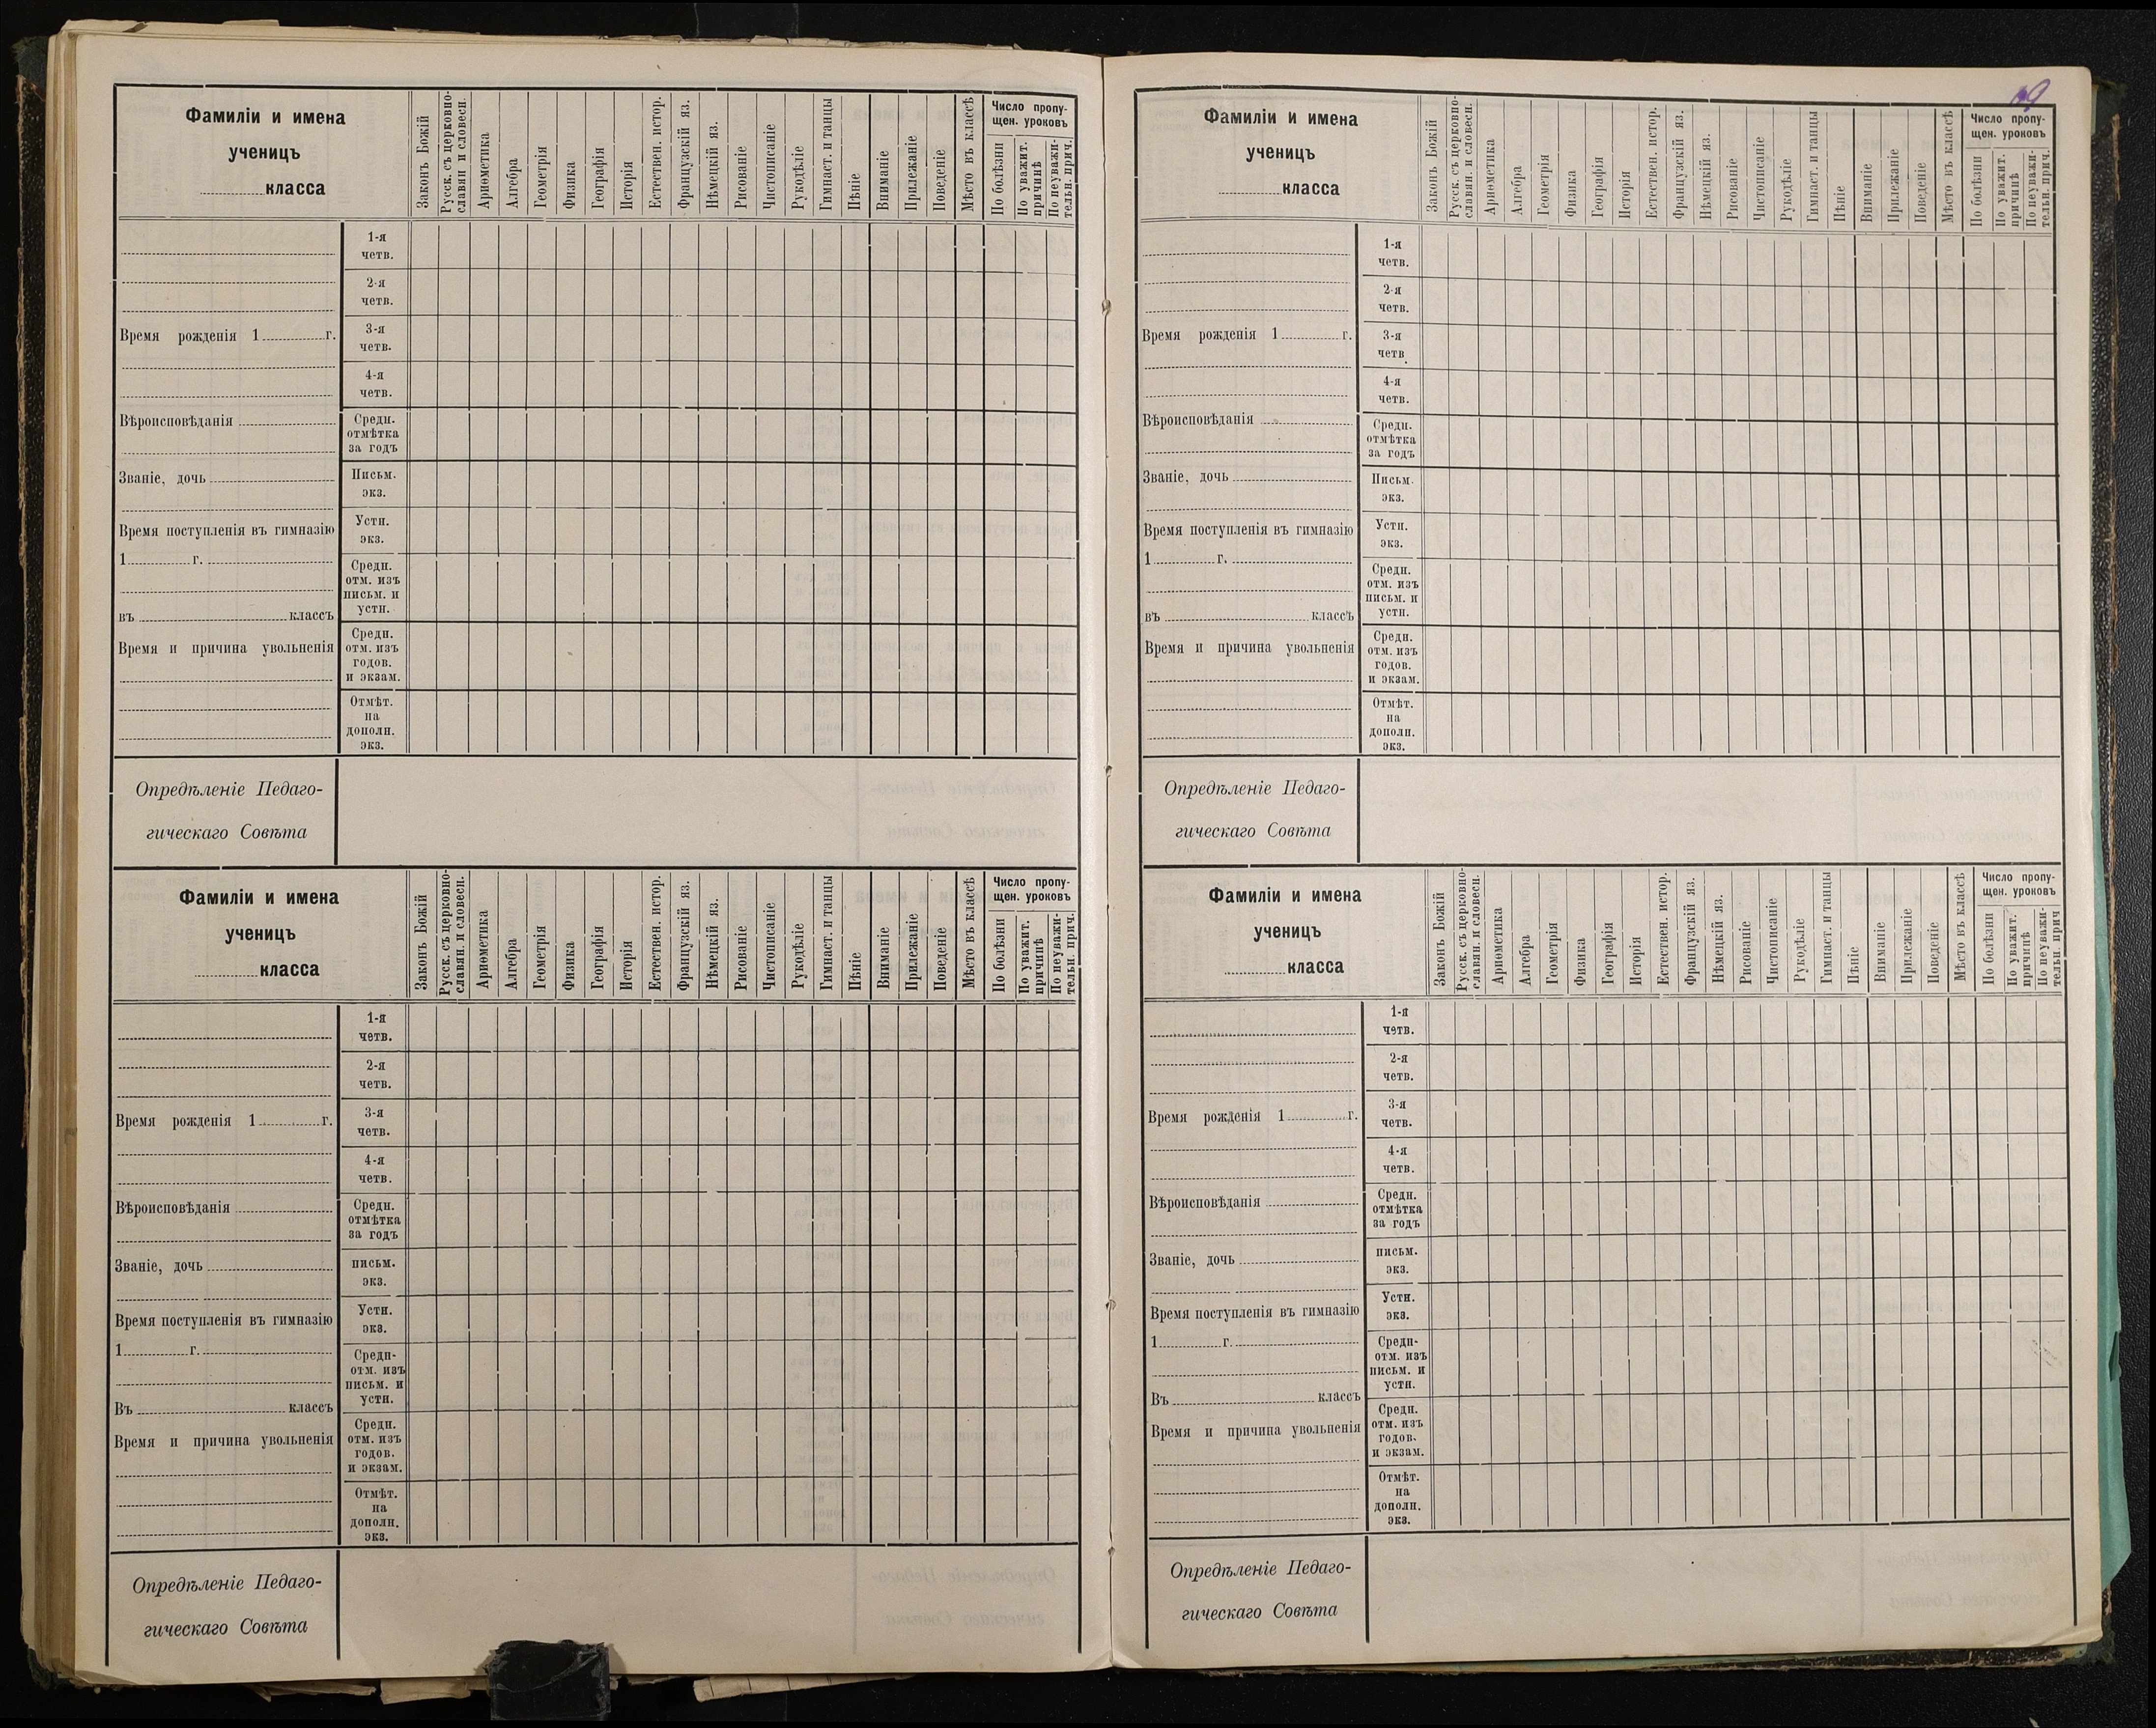 Фамиліи и имена
ученицъ
класса
Законъ Божій
Русск. съ церковно-
славян и словесн.
Ариѳметика
Алгебра
Геометрія
Физика
Географія
Исторія
Естествен. истор.
Французскій яз.
Нѣмецкій яз.
Рисованіе
Чистописаніе
Рукодѣліе
Гимнаст. и танцы
Пѣніе
Вниманіе
Прилежаніе
Поведеніе
Мѣсто въ классѣ
Число пропу-
щен. уроковъ
По болѣзни
По уважит.
причинѣ
По неуважи-
тельн. прич.
1-я
четв.
2-я
четв.
Время рожденія 1 г.
3-я
четв.
4-я
четв.
Вѣроисповѣданія
Средн.
отмѣтка
за годъ
Званіе, дочь
Письм.
экз.
Время поступленія въ гимназію
Устн.
экз.
1 г.
Средн.
отм. изъ
письм. и
устн.
въ классъ
Время и причина увольненія
Средн.
отм. изъ
годов.
и экзам.
Отмѣт.
на
дополн.
экз.
Опредѣленіе Педаго-
гическаго Совѣта
Фамиліи и имена
ученицъ
класса
Законъ Божій
Русск. съ церковно-
славян. и словесн.
Ариѳметика
Алгебра
Геометрія
Физика
Географія
Исторія
Естествен. истор.
Французскій яз.
Нѣмецкій яз.
Рисованіе
Чистописаніе
Рукодѣліе
Гимнаст. и танцы
Пѣніе
Вниманіе
Прилежаніе
Поведеніе
Мѣсто въ классѣ
Число пропу-
щен. уроковъ
По болѣзни
По уважит.
причинѣ
По неуважи-
тельн. прич.
1-я
четв.
2-я
четв.
Время рожденія 1 г.
3-я
четв.
4-я
четв.
Вѣроисповѣданія
Средн.
отмѣтка
за годъ
Званіе, дочь
письм.
экз.
Время поступленія въ гимназію
Устн.
экз.
1 г.
Средн-
отм. изъ
письм. и
устн.
Въ классъ
Время и причина увольненія
Средн.
отм. изъ
годов.
и экзам.
Отмѣт.
на
дополн.
экз.
Опредѣленіе Педаго-
гическаго Совѣта
Фамиліи и имена
ученицъ
класса
Законъ Божій
Русск. съ церковно-
славян. и словесн.
Ариѳметика
Алгебра
Геометрія
Физика
Географія
Исторія
Естествен. истор.
Французскій яз.
Нѣмецкій яз.
Рисованіе
Чистописаніе
Рукодѣліе
Гимнаст. и танцы
Пѣніе
Вниманіе
Прилежаніе
Поведеніе
Мѣсто въ классѣ
Число пропу-
щен. уроковъ
По болѣзни
По уважит.
причинѣ
По неуважи-
тельн. прич.
1-я
четв.
2-я
четв.
Время рожденія 1 г.
3-я
четв.
4-я
четв.
Вѣроисповѣданія
Средн.
отмѣтка
за годъ
Званіе, дочь
Письм.
экз.
Время поступленія въ гимназію
Устн.
экз.
1 г.
Средн.
отм. изъ
письм. и
устн.
въ классъ
Время и причина увольненія
Средн.
отм. изъ
годов.
и экзам.
Отмѣт.
на
дополн.
экз.
Опредѣленіе Педаго-
гическаго Совѣта
Фамиліи и имена
ученицъ
класса
Законъ Божій
Русск. съ церковно-
славян. и словесн.
Ариѳметика
Алгебра
Геометрія
Физика
Географія
Исторія
Естествен. истор.
Французскій яз.
Нѣмецкій яз.
Рисованіе
Чистописаніе
Рукодѣліе
Гимнаст. и танцы
Пѣніе
Вниманіе
Прилежаніе
Поведеніе
Мѣсто въ классѣ
Число пропу-
щен. уроковъ
По болѣзни
По уважит.
причинѣ
По неуважи-
тельн. прич
1-я
четв.
2-я
четв.
Время рожденія 1 г.
3-я
четв.
4-я
четв.
Вѣроисповѣданія
Средн.
отмѣтка
за годъ
Званіе, дочь
письм.
экз.
Время поступленія въ гимназію
Устн.
экз.
1 г.
Средн-
отм. изъ
письм. и
устн.
Въ классъ
Время и причина увольненія
Средн.
отм. изъ
годов.
и экзам.
Отмѣт.
на
дополн.
экз.
Опредѣленіе Педаго-
гическаго Совѣта